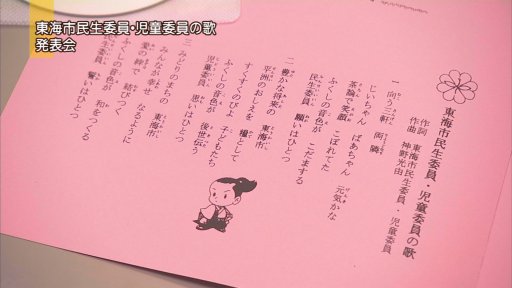 東海市民生委員・児童委員の歌
発表会
東海市民生委員・児童委員の歌
作詞 東海市民生委員・児童委員
作曲 神野光由
一 向う三軒 両隣
じいちゃん ばあちゃん 元気かな
茶論で笑顔 こぼれてた
ふくしの音色が こだまする
民生委員 願いはひとつ
二 豊かな将来の 東海市
平洲のおしえを 糧として
すくすくのびよ 子どもたち
ふくしの音色が 後世伝う
児童委員 思いはひとつ
三 みどりのまちの 東海市
みんなが幸せ なるように
愛の絆で 結びつく
ふくしの音色が 和をつくる
民生委員 誓いはひとつ